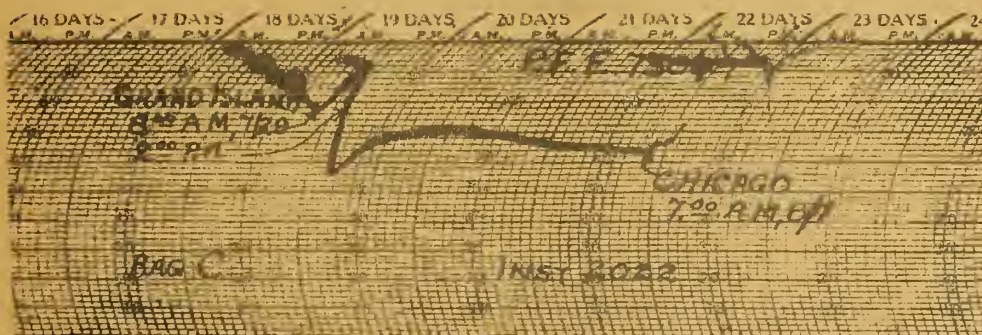 16 DAYS 17 DAYS 18 DAYS 19 DAYS 20 DAYS 21 DAYS 22 DAYS 23 DAYS 24
A.M. P.M. A.M. P.M. A.M. P.M. A.M. P.M. A.M. P.M. A.M. P.M. A.M. P.M. A.M. P.M. A.M.
P.F.E.
GRAND ISLAND
8 00 A M, 7/20
2 00 P M
CHICAGO
7 00 A M,
BAG C INST 2022